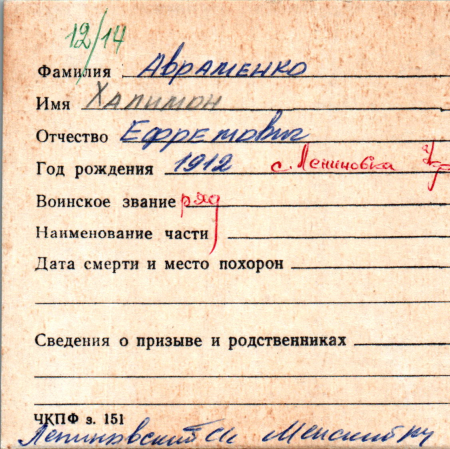 12/14
Фамилия Авраменко
Имя Халимон
Отчество Ефретович
Год рождения 1912 с. Лениновка
Воинское звание ряд
Наименование части
Дата смерти и место похорон
Сведения о призыве и родственниках
ЧКПФ з. 151
Лениновский с/с Менский р-н